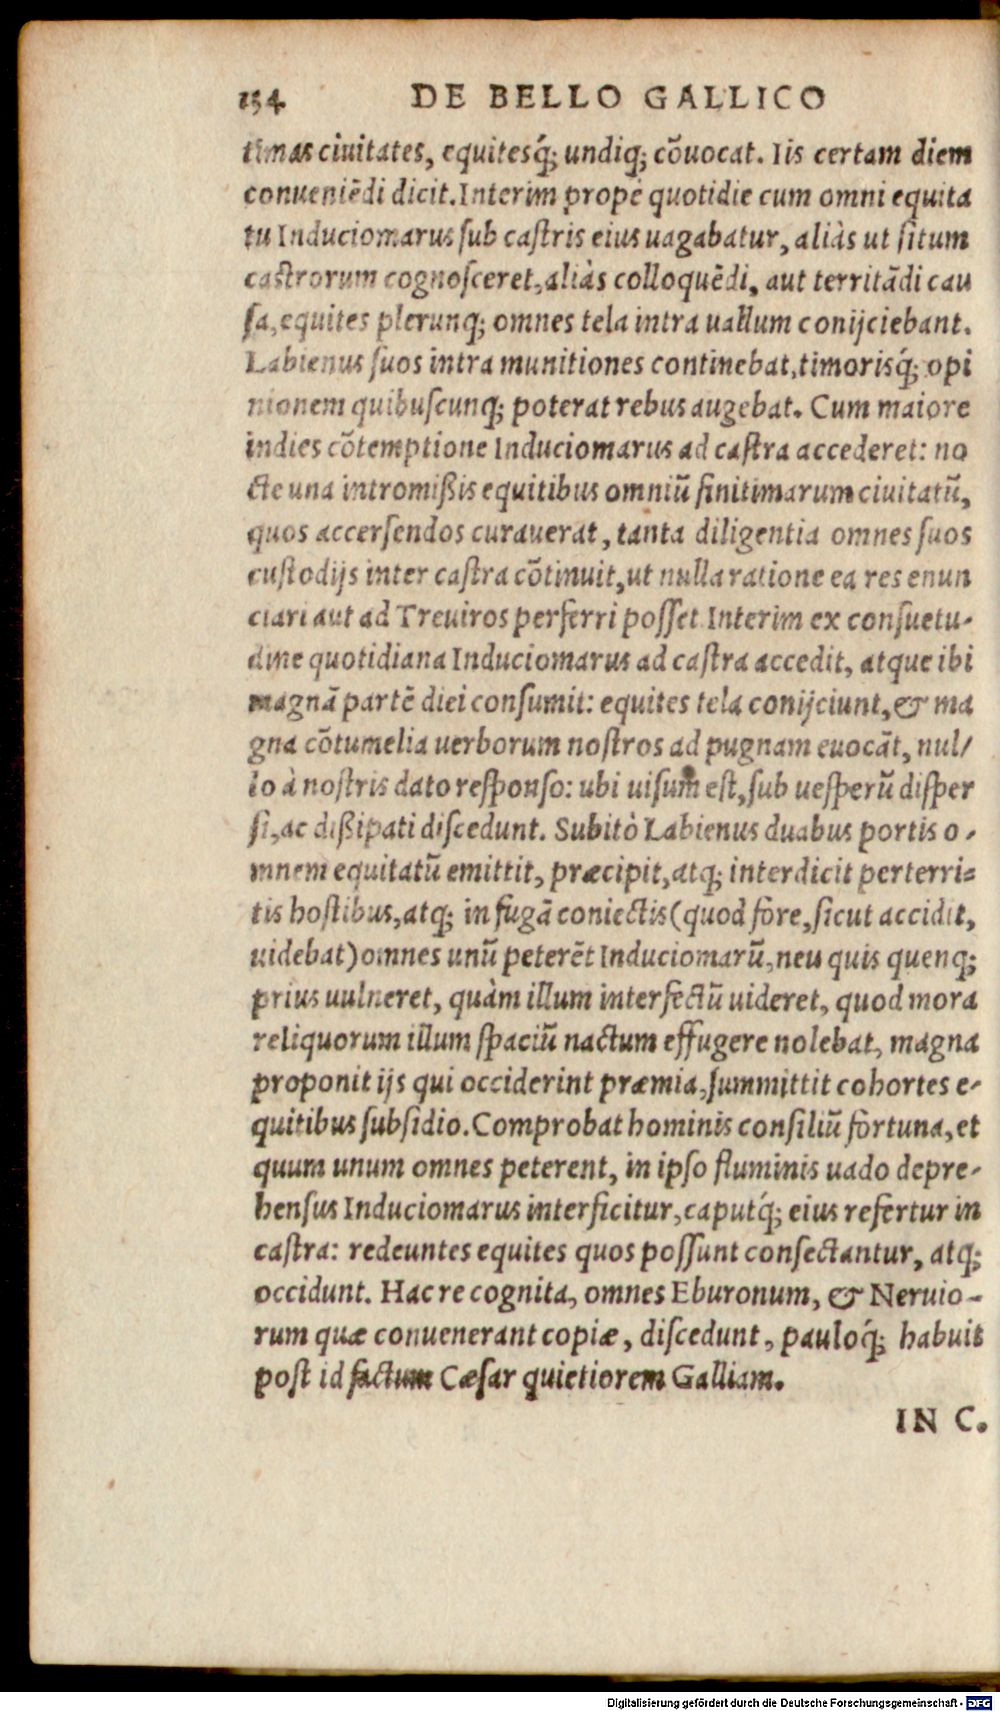 154 DE BELLO GALLICO
timas ciuitates, equitesq́; undiq; cōuocat. Iis certam diem
conueniēdi dicit. Interim prope quotidie cum omni equita
tu Induciomarus ſub caſtris eius uagabatur, aliàs ut ſitum
caſtrorum cognoſceret, aliàs colloquēdi, aut territādi cau
ſa, equites plerunq; omnes tela intra uallum conijciebant.
Labienus ſuos intra munitiones continebat, timorisq́; opi
nionem quibuſcunq; poterat rebus augebat. Cum maiore
indies cōtemptione Induciomarus ad caſtra accederet: no
cte una intromißis equitibus omniū finitimarum ciuitatū,
quos accerſendos curauerat, tanta diligentia omnes ſuos
cuſtodijs inter caſtra cōtinuit, ut nulla ratione ea res enun
ciari aut ad Treuiros perferri poſſet Interim ex conſuetu-
dine quotidiana Induciomarus ad caſtra accedit, atque ibi
magnā partē diei conſumit: equites tela conijciunt, & ma
gna cōtumelia uerborum noſtros ad pugnam euocāt, nul/
lo à noſtris dato reſponſo: ubi uiſum eſt, ſub ueſperū diſper
ſi, ac dißipati diſcedunt. Subitò Labienus duabus portis o-
mnem equitatū emittit, præcipit, atq; interdicit perterri=
tis hoſtibus, atq; in fugā coniectis (quod fore, ſicut accidit,
uidebat) omnes unū peterēt Induciomarū, neu quis quenq;
prius uulneret, quàm illum interfectū uideret, quod mora
reliquorum illum ſpaciū nactum effugere nolebat, magna
proponit ijs qui occiderint præmia, ſummittit cohortes e-
quitibus ſubſidio. Comprobat hominis conſiliū fortuna, et
quum unum omnes peterent, in ipſo fluminis uado depre-
henſus Induciomarus interficitur, caputq́; eius refertur in
caſtra: redeuntes equites quos poſſunt conſectantur, atq;
occidunt. Hac re cognita, omnes Eburonum, & Neruio-
rum quæ conuenerant copiæ, diſcedunt, pauloq́; habuit
poſt id factum Cæſar quietiorem Galliam.
IN C.
Digitalisierung gefördert durch die Deutsche Forschungsgemeinschaft - DFG